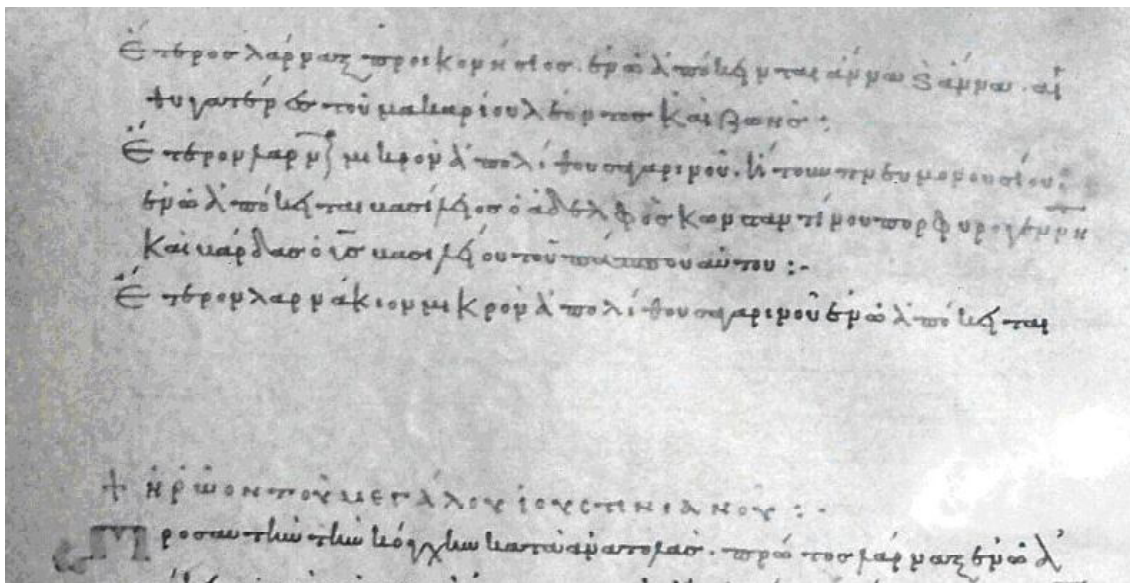 Ἕτερος λάρναξ προικονήσιος. ἐν ᾧ ἀπόκεινται ἄννα καὶ ἄννα. αἱ
θυγατέρες τοῦ μακαρίου λέοντος καὶ ζωῆς :
Ἕτερον λαρν μικρὸν ἀπὸ λίθου σαγαρινοῦ. ἤτουν πνευμονουσίου :
ἐν ᾧ ἀπόκειται βασίλειος ὁ ἀδελφὸς κωνσταντίνου πορφυρογεννή
καὶ βάρδας ὁ υἱς βασιλείου τοῦ πάππου αὐτοῦ :-
Ἕτερον λαρνάκιον μικρὸν ἀπὸ λίθου σαγαρινοῦ ἐν ᾧ ἀπόκειται
+ ἡρῶον τοῦ μεγάλου ἰουστινιανοῦ : -
Πρὸς αὐτὴν τὴν κόγχην κατὰ ἀνατολάς. πρῶτος λάρναξ ἐν ᾧ ἀ